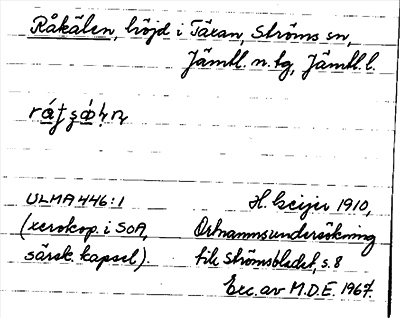 Råkälen, höjd i Täxan, Ströms sn,
Jämtl. n. tg, Jämtl. l.
ULMA 446:1
(xerokop. i SOA,
särsk. kapsel).
H. Geijer 1910,
Ortnamnsundersökning
för Strömsbladet, s. 8
Exc. av M.D.E. 1967.